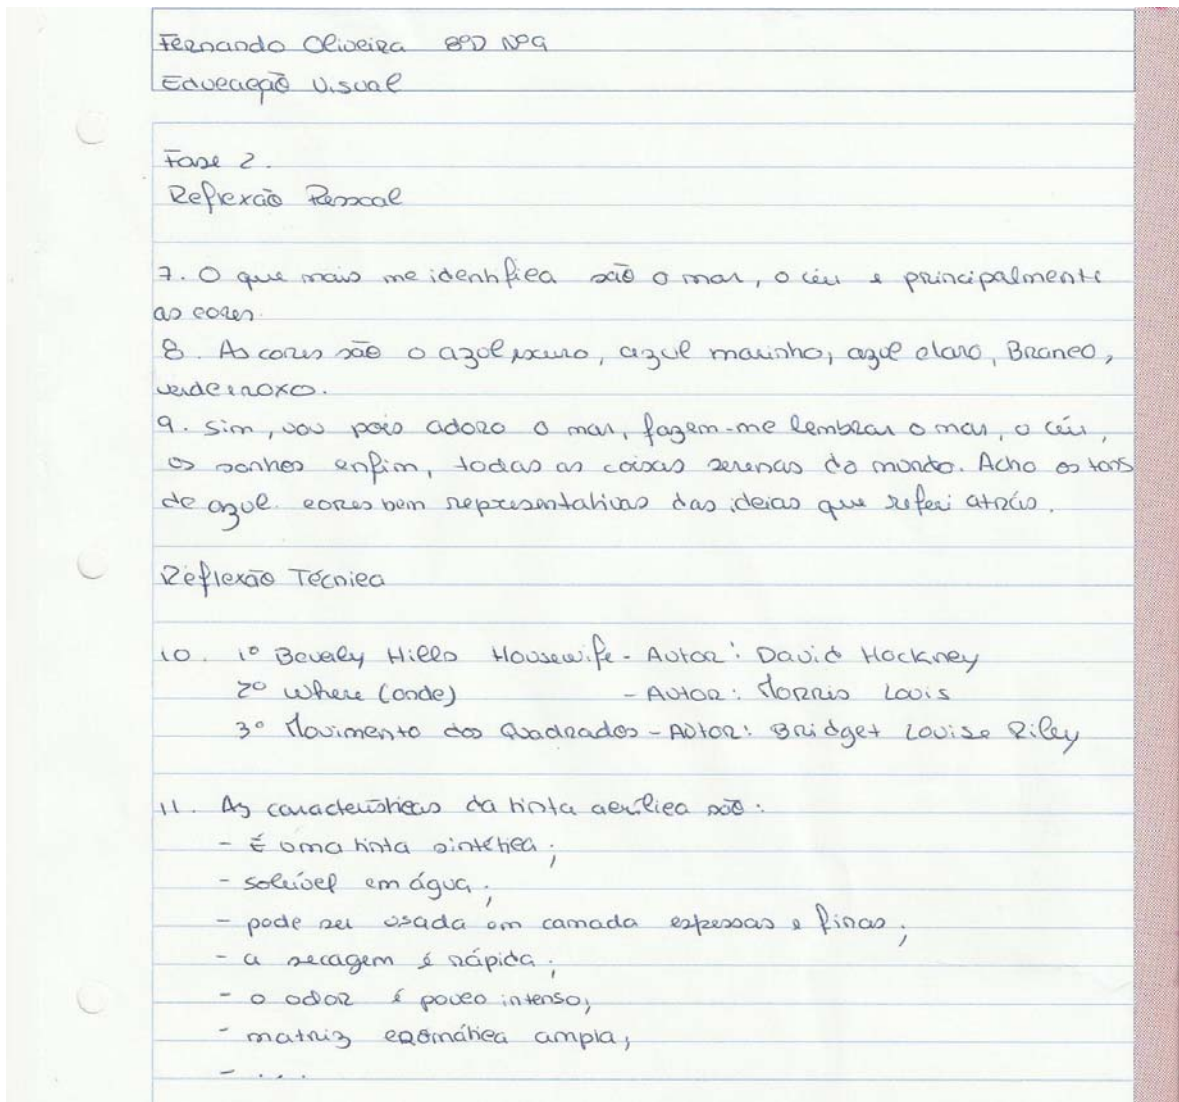 Fernando Oliveira 8ºD Nº9
Educação Visual
Fase 2.
Reflexão Pessoal
7. O que mais me identifica são o mar, o céu e principalmente
as cores.
8. As cores são o azul escuro, azul marinho, azul claro, Branco,
verde e roxo.
9. Sim, vou pois adoro o mar, fazem-me lembrar o mar, o céu,
os sonhos enfim, todas as coisas serenas do mundo. Acho os tons
de azul cores bem representativas das ideias que referi atrás.
Reflexão Técnica
10. 1º Bevaly Hills Housewife - Autor: David Hockney
2º Where (onde) - Autor: Morris Louis
3º Movimento dos Quadrados - Autor: Bridget Louise Riley
11. As características da tinta acrílica são:
- É uma tinta sintética;
- solúvel em água;
- pode ser usada em camada espessas e finas;
- a secagem é rápida;
- o odor é pouco intenso;
- matriz cromática ampla;
- ...